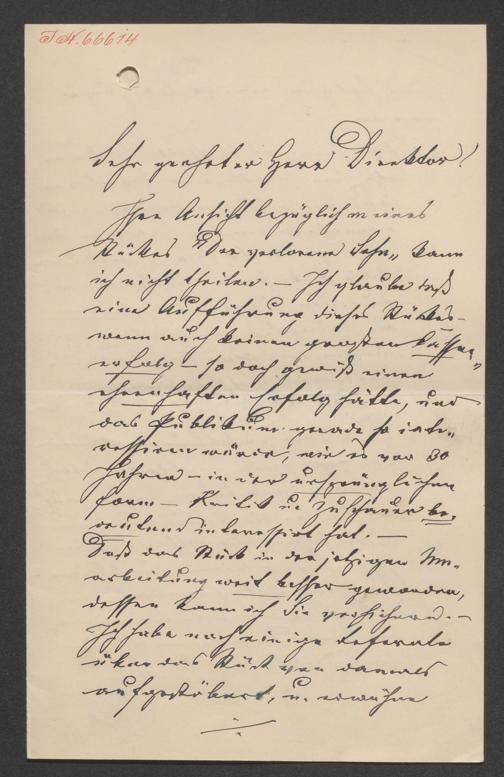 I.N. 66614
Sehr geehrter Herr Direktor!
Ihre Ansicht bezüglich meines
Stückes "Der verlorene Sohn" kann
ich nicht theilen. – Ich glaube daß
eine Aufführung dieses Stückes –
wenn auch keinen großen Kassen-
erfolg – so doch gewiß einen
ehrenhaften Erfolg hätte, und
das Publikum gerade so inte-
ressiren würde, wie es vor 30
Jahren – in der ursprünglichen
Form – Kritik u. Zuschauer be-
deutend interessirt hat. –
Daß das Stück in der jetzigen Um-
arbeitung weit besser geworden,
dessen kann ich Sie versichern. –
Ich habe noch einige Referate
über das Stück von damals
aufgestöbert, u. erwähne